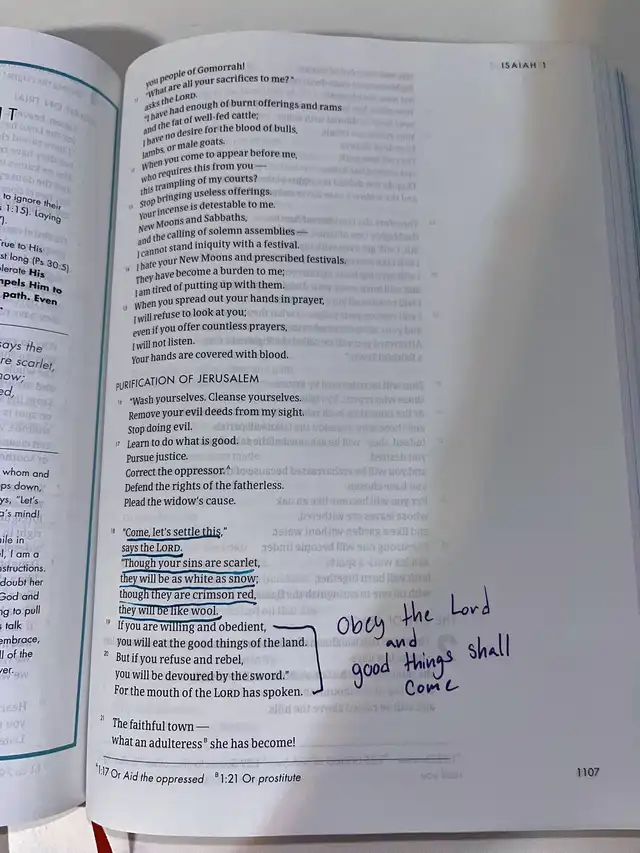 IT
to ignore their
s 1:15). Laying
").
rue to His
st long (Ps 30:5).
olerate His
mpels Him to
path. Even
says the
re scarlet,
now;
ed,
whom and
ps down,
ys, "Let's
a's mind!
ile in
el, I am a
structions.
doubt her
God and
ng to pull
s talk
embrace,
ll of the
ver.
ISAIAH 1
you people of Gomorrah!
11 "What are all your sacrifices to me?"
asks the LORD.
"I have had enough of burnt offerings and rams
and the fat of well-fed cattle;
I have no desire for the blood of bulls,
lambs, or male goats.
12 When you come to appear before me,
who requires this from you —
this trampling of my courts?
13 Stop bringing useless offerings.
Your incense is detestable to me.
New Moons and Sabbaths,
and the calling of solemn assemblies —
I cannot stand iniquity with a festival.
14 I hate your New Moons and prescribed festivals.
They have become a burden to me;
I am tired of putting up with them.
15 When you spread out your hands in prayer,
I will refuse to look at you;
even if you offer countless prayers,
I will not listen.
Your hands are covered with blood.
PURIFICATION OF JERUSALEM
16 "Wash yourselves. Cleanse yourselves.
Remove your evil deeds from my sight.
Stop doing evil.
17 Learn to do what is good.
Pursue justice.
Correct the oppressor.A
Defend the rights of the fatherless.
Plead the widow's cause.
18 "Come, let's settle this,"
says the LORD.
"Though your sins are scarlet,
they will be as white as snow;
though they are crimson red,
they will be like wool.
19 If you are willing and obedient,
you will eat the good things of the land.
20 But if you refuse and rebel,
you will be devoured by the sword."
For the mouth of the LORD has spoken.
Obey the Lord
and
good things shall
come
21 The faithful town —
what an adulteressB she has become!
A1:17 Or Aid the oppressed B1:21 Or prostitute
1107